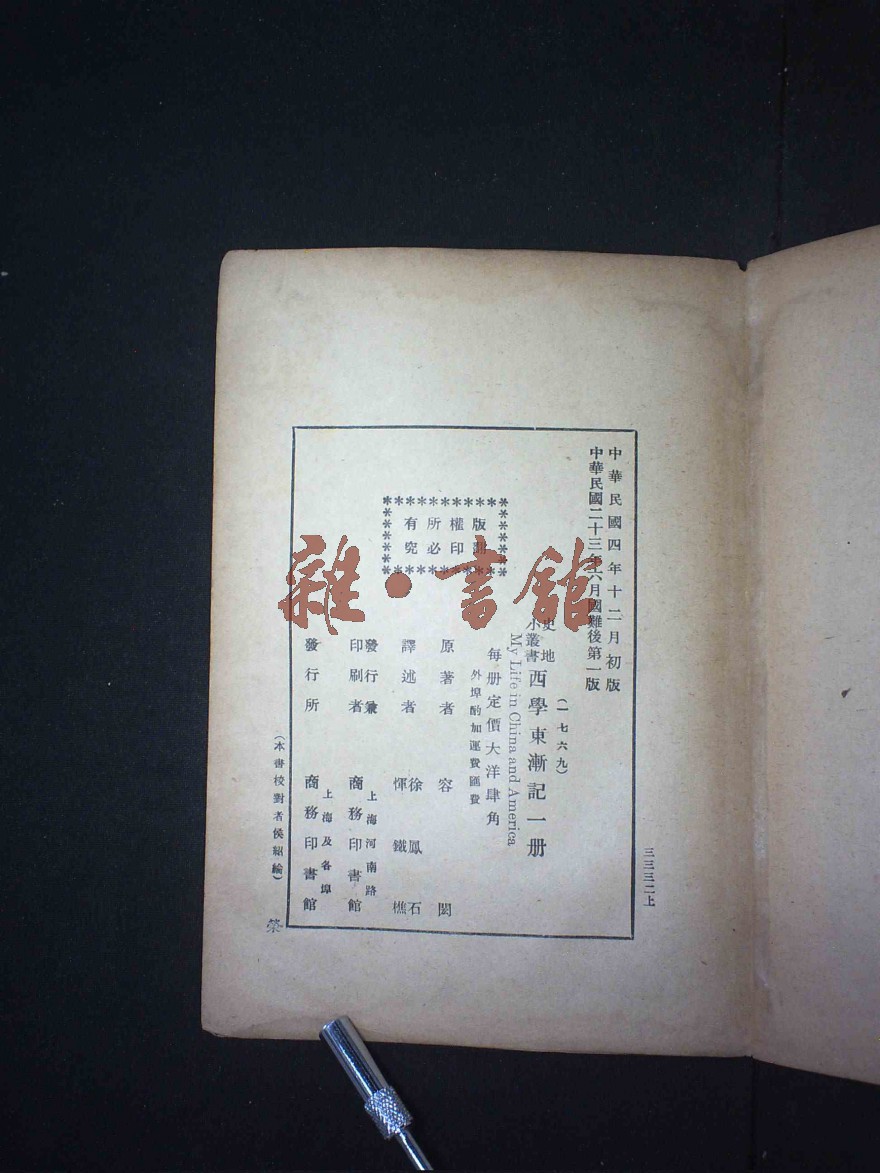 中華民國四年十二月初版
中華民國二十三年六月國難後第一版
三三三二上
(一七六九)
史地小叢書
西學東漸記一册
My Life in China and America
每册定價大洋肆角
外埠酌加運費匯費
版權所有
印必究
原著者 容閎
譯述者 徐鳳石 惲鐵樵
發行兼印刷者 上海河南路 商務印書館
發行所 上海及各埠 商務印書館
(本書校對者侯紹綸)
榮
雜·書館